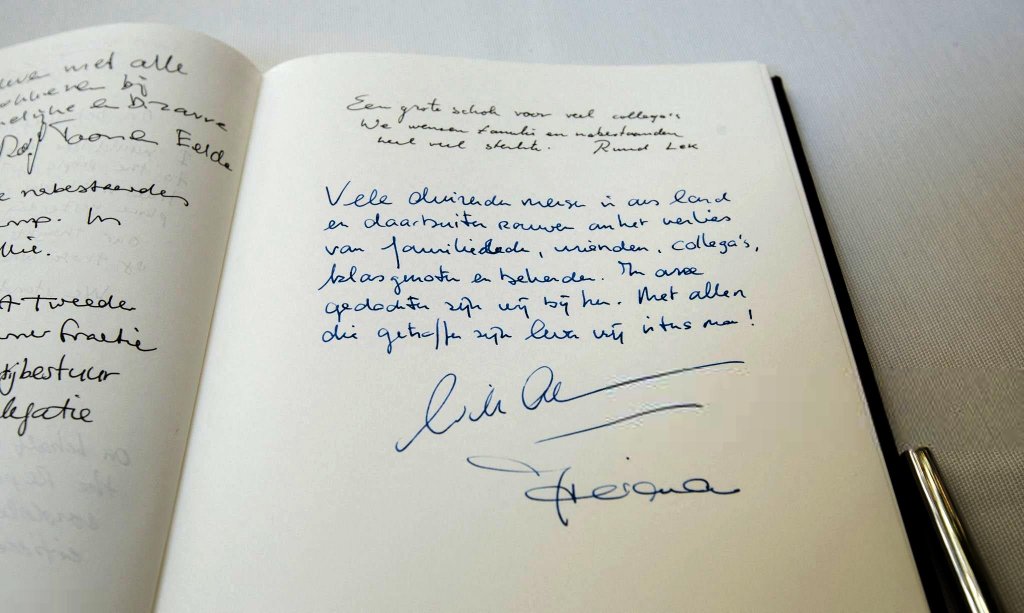 met alle
bij
en Bizarre
Eelde
nabestaanden
Tweede
fractie
bestuur
Een grote schok voor veel collega's
We wensen familie en nabestaanden
heel veel sterkte. Ruud Lok
Vele duizenden mensen in ons land
en daarbuiten rouwen om het verlies
van familieleden, vrienden, collega's,
klasgenoten en bekenden. In onze
gedachten zijn wij bij hen. Met allen
die getroffen zijn leven wij intens mee!
Willem Alexander
Máxima